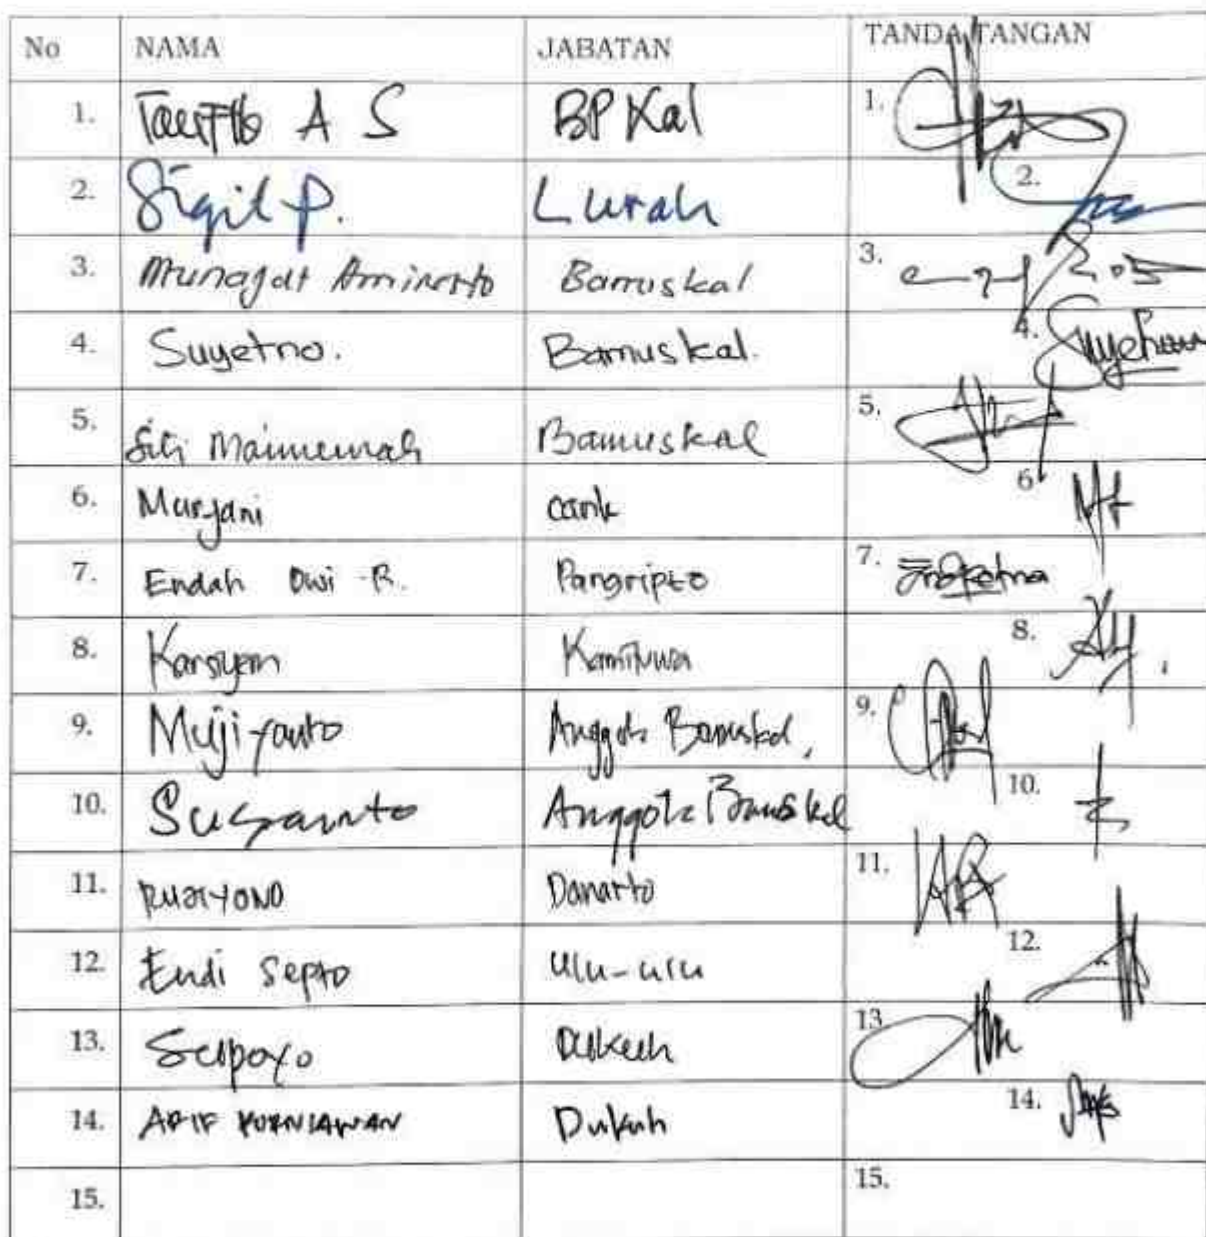 No NAMA JABATAN TANDA TANGAN
1. A S BP Kal 1.
2. Sigit P. Lurah 2.
3. Munajat Aminarto Bamuskal 3.
4. Suyetno. Bamuskal. 4.
5. Siti Maimunah Bamuskal 5.
6. Murjani carik 6.
7. Endah Dwi R. Pangripto 7.
8. Karsiyem Kamituwa 8.
9. Mujiyanto Anggota Bamuskal, 9.
10. Susanto Anggota Bamuskal 10.
11. Danarto 11.
12. Endi Septo Ulu-ulu 12.
13. Supoyo Dukuh 13.
14. ARIF KURNIAWAN Dukuh 14.
15. 15.